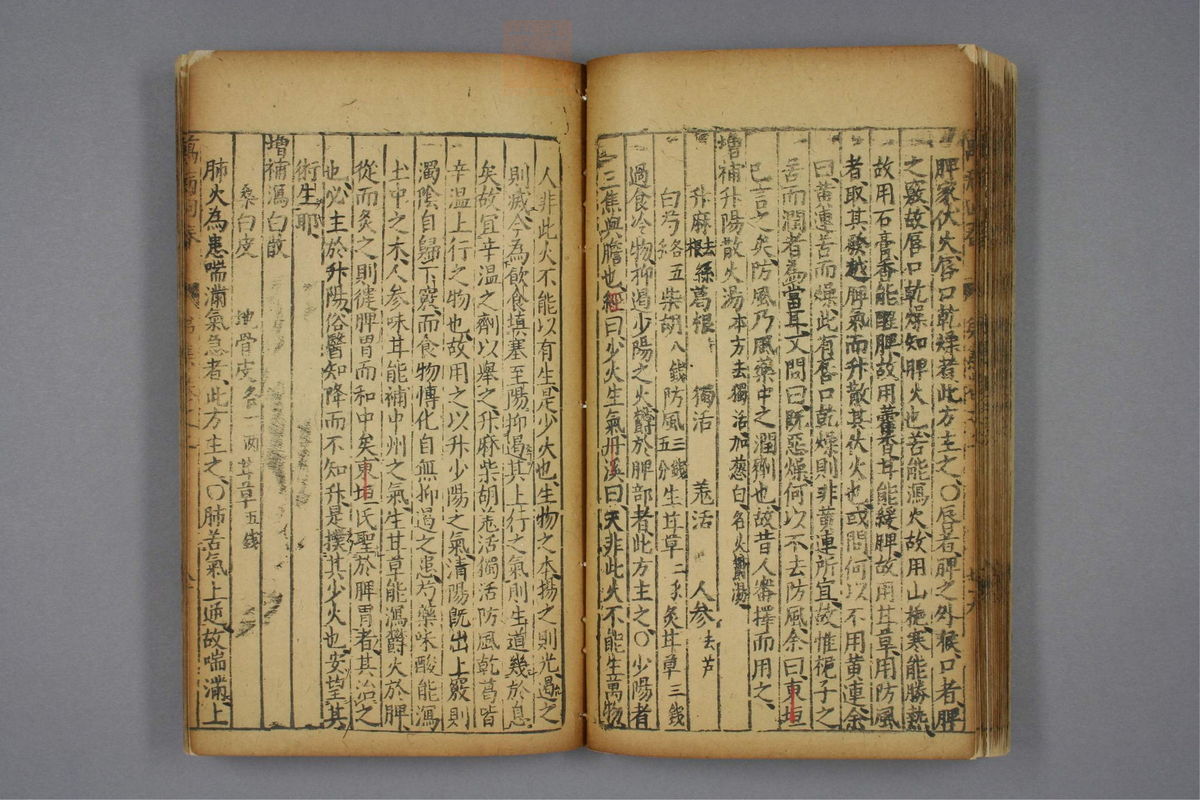 脾家伏火唇口乾燥者此方主之○唇者脾之外候口者脾
之竅故唇口乾燥知脾火也苦能瀉火故用山梔寒能勝熱
故用石膏香能醒脾故用藿香甘能緩脾故用甘草用防風
者取其發越脾氣而升散其伏火也或問何以不用黃連余
曰黃連苦而燥此有唇口乾燥則非黃連所宜故惟梔子之
苦而潤者為當耳又問曰既惡燥何以不去防風余曰東垣
已言之矣防風乃風藥中之潤劑也故昔人審擇而用之
增補升陽散火湯本方去獨活加蔥白名火鬱湯
升麻去根 葛根 獨活 羌活 人參去芦
白芍各五錢 柴胡八錢 防風三錢五分 生甘草二錢 炙甘草三錢
過食冷物抑遏少陽之火鬱於脾部者此方主之○少陽者
三焦與膽也經曰少火生氣丹溪曰天非此火不能生萬物
人非此火不能以有生是少火也生物之本揚之則光遏之
則滅今為飲食填塞至陽抑遏其上行之氣則生道幾於息
矣故宜辛溫之劑以舉之升麻柴胡羌活獨活防風乾葛皆
辛溫上行之物也故用之以升少陽之氣清陽既出上竅則
濁陰自歸下竅而食物慱化自無抑遏之患芍藥味酸能瀉
土中之木人參味甘能補中州之氣生甘草能瀉鬱火於脾
從而炙之則健脾胃而和中矣東垣氏聖於脾胃者其治之
也必主於升陽俗醫知降而不知升是撲其少火也安望其
術生耶
增補瀉白散
桑白皮 地骨皮各一兩 甘草五錢
肺火為患喘滿氣急者此方主之○肺苦氣上逆故喘滿上